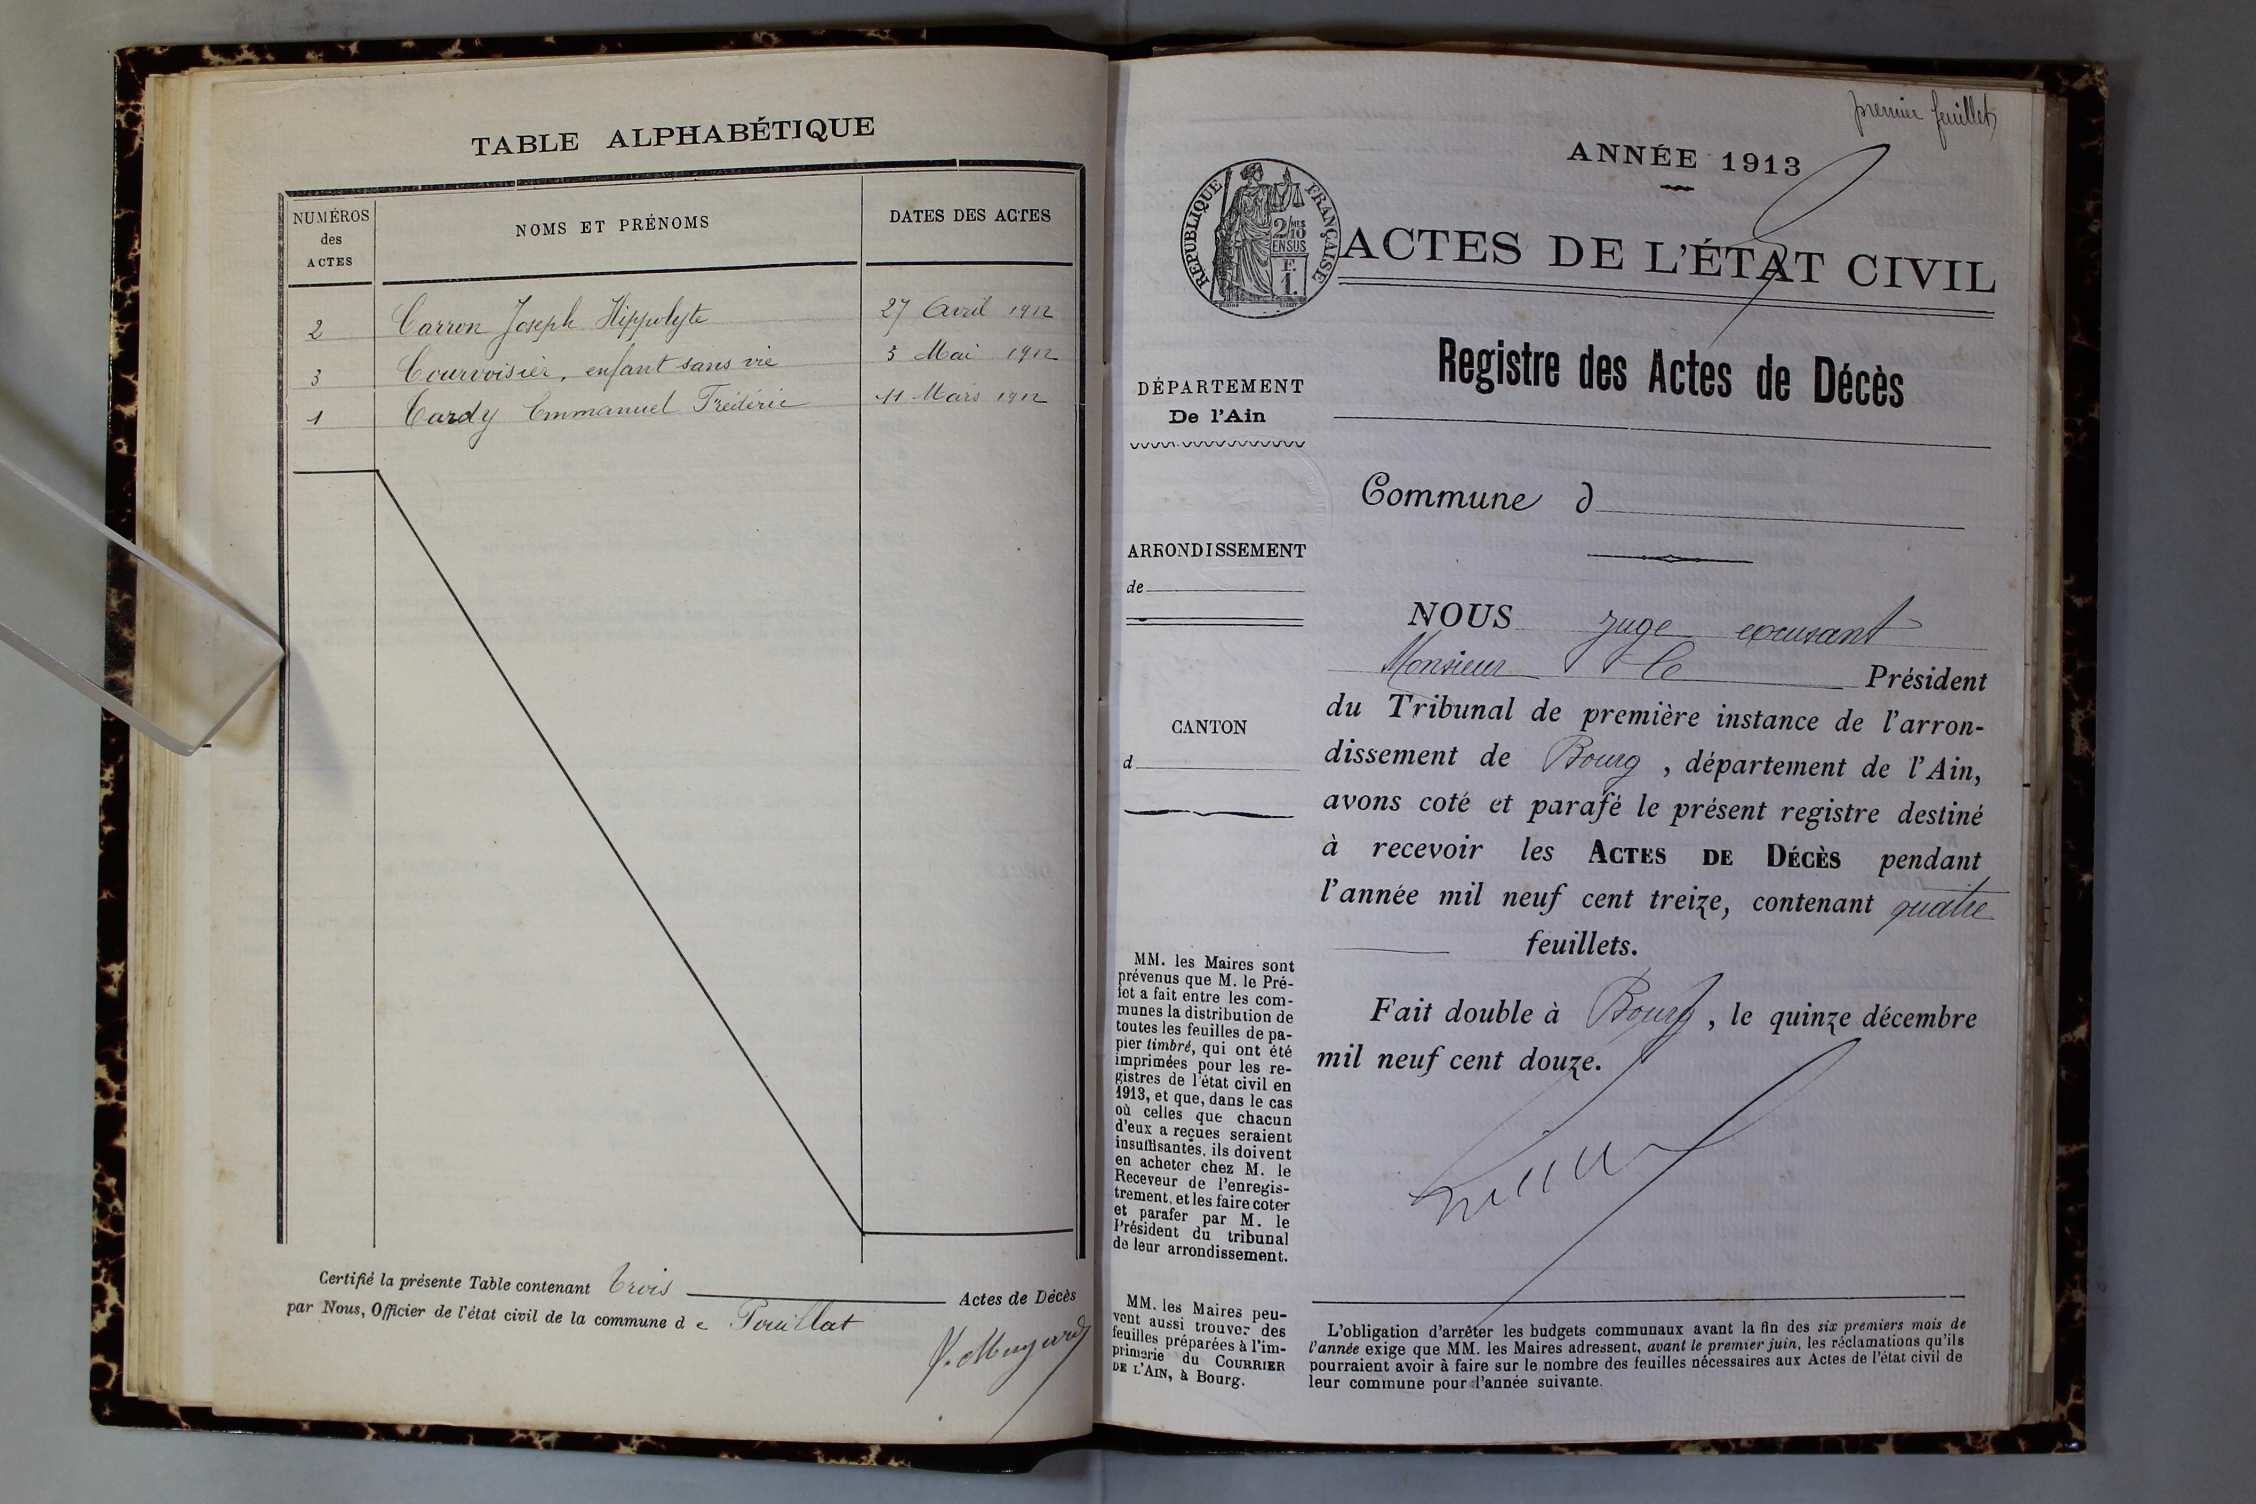 TABLE ALPHABÉTIQUE
NUMÉROS
des
ACTES
NOMS ET PRÉNOMS
DATES DES ACTES
2 Carron Joseph Hippolyte 27 Avril 1912
3 Courvoisier, enfant sans vie 3 Mai 1912
1 Tardy Emmanuel Frédéric 11 Mars 1912
Certifié la présente Table contenant Trois Actes de Décès
par Nous, Officier de l'état civil de la commune de Pouillat
premier feuillet
ANNÉE 1913
RÉPUBLIQUE FRANÇAISE
2/10MES
EN SUS
F.
1.
ACTES DE L'ÉTAT CIVIL
Registre des Actes de Décès
DÉPARTEMENT
De l'Ain
Commune d
ARRONDISSEMENT
de
CANTON
d
NOUS juge excusant
Monsieur le Président
du Tribunal de première instance de l'arron-
dissement de Bourg, département de l'Ain,
avons coté et parafé le présent registre destiné
à recevoir les ACTES DE DÉCÈS pendant
l'année mil neuf cent treize, contenant quatre
feuillets.
Fait double à Bourg, le quinze décembre
mil neuf cent douze.
MM. les Maires sont
prévenus que M. le Pré-
fet a fait entre les com-
munes la distribution de
toutes les feuilles de pa-
pier timbré, qui ont été
imprimées pour les re-
gistres de l'état civil en
1913, et que, dans le cas
où celles que chacun
d'eux a reçues seraient
insuffisantes, ils doivent
en acheter chez M. le
Receveur de l'enregis-
trement, et les faire coter
et parafer par M. le
Président du tribunal
de leur arrondissement.
MM. les Maires peu-
vent aussi trouver des
feuilles préparées à l'im-
primerie du COURRIER
DE L'AIN, à Bourg.
L'obligation d'arrêter les budgets communaux avant la fin des six premiers mois de
l'année exige que MM. les Maires adressent, avant le premier juin, les réclamations qu'ils
pourraient avoir à faire sur le nombre des feuilles nécessaires aux Actes de l'état civil de
leur commune pour l'année suivante.